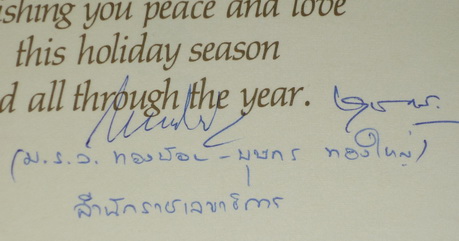 ishing you peace and love
this holiday season
d all through the year.
(ม.ร.ว. ทองน้อย - บุษกร ทองใหญ่)
สำนักราชเลขาธิการ